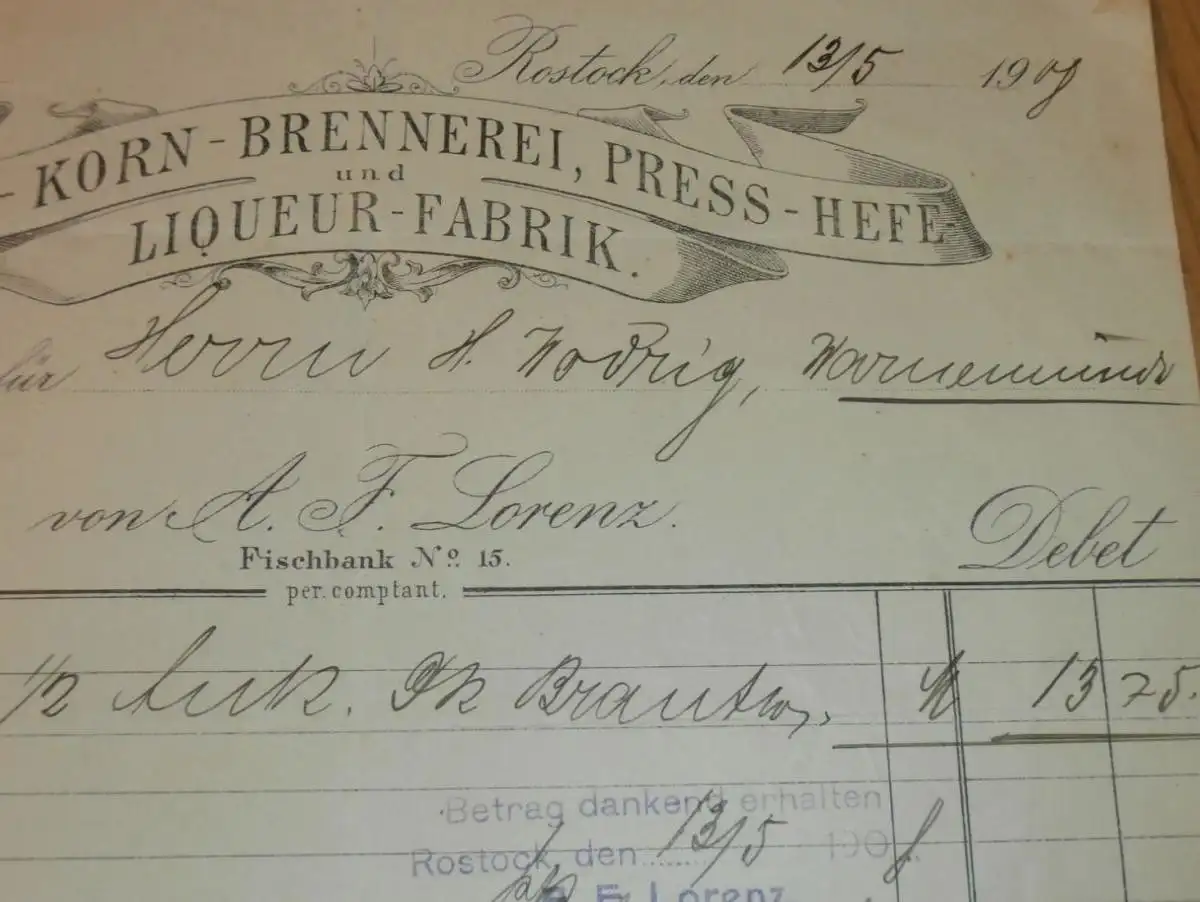 Rostock, den 13/5 1908
-KORN-BRENNEREI, PRESS-HEFE-
und
LIQUEUR-FABRIK.
für Herrn H. Wodrig, Warnemünde
von A. F. Lorenz.
Debet
Fischbank No. 15.
per. comptant.
1/2 Ank. Brantw. M 13 75.
Betrag dankend erhalten
Rostock, den 13/5 1908
F. Lorenz